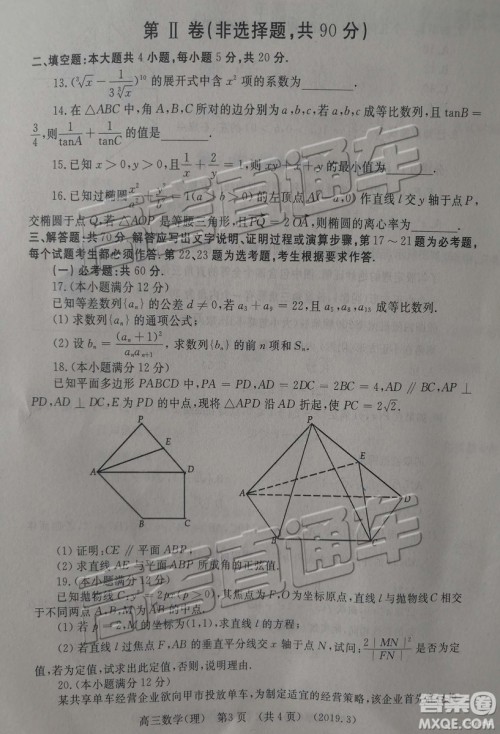 第 Ⅱ 卷(非选择题,共 90 分)
二、填空题:本大题共 4 小题,每小题 5 分,共 20 分.
13. (∛x − 1/(3∛x))¹⁰ 的展开式中含 x² 项的系数为
14. 在△ABC 中,角 A,B,C 所对的边分别为 a,b,c,若 a,b,c 成等比数列,且 tanB=
3/4,则 1/tanA + 1/tanC 的值是
15. 已知 x>0,y>0,且 1/x + 2/y = 1,则 xy+x+y 的最小值为
16. 已知过椭圆 的左顶点 作直线 l 交 y 轴于点 P,
交椭圆于点 Q,若△AOP 是等腰三角形,且 =2 ,则椭圆的离心率为
三、解答题:共 70 分. 解答应写出文字说明、证明过程或演算步骤,第 17～21 题为必考题,
每个试题考生都必须作答. 第 22、23 题为选考题,考生根据要求作答.
(一) 必考题:共 60 分.
17. (本小题满分 12 分)
已知等差数列{aₙ}的公差 d≠0,若 a₃+a₉=22,且 a₂,a₅,a₁₄ 成等比数列.
(1) 求数列{aₙ}的通项公式;
(2) 设 bₙ=(aₙ+1)²/(aₙaₙ₊₁),求数列{bₙ}的前 n 项和 Sₙ.
18. (本小题满分 12 分)
已知平面多边形 PABCD 中,PA=PD,AD=2DC=2BC=4,AD∥BC,AP⊥
PD,AD⊥DC,E 为 PD 的中点,现将△APD 沿 AD 折起,使 PC=2√2.
P
E
A
D
B
C
P
E
A
D
B
(1) 证明:CE∥平面 ABP;
(2) 求直线 AE 与平面 ABP 所成角的正弦值.
19. (本小题满分 12 分)
已知抛物线 C:y²=2px(p>0),其焦点为 F,O 为坐标原点,直线 l 与抛物线 C 相交
于不同两点 A,B,M 为 AB 的中点.
(1) 若 p=2,M 的坐标为 ,求直线 l 的方程;
(2) 若直线 l 过焦点 F,AB 的垂直平分线交 x 轴于点 N,试问: 2|MN|²/|FN| 是否为定
值,若为定值,试求出此定值,否则,说明理由.
20. (本小题满分 12 分)
某共享单车经营企业欲向甲市投放单车,为制定适宜的经营策略,该企业首先
高三数学(理) 第3页 (共 4 页) (2019.3)
高考直通车
高考直通车